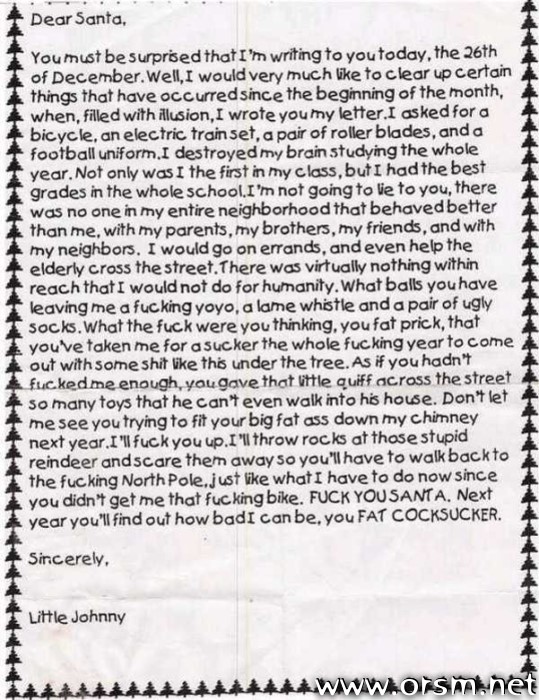 Dear Santa,
You must be surprised that I'm writing to you today, the 26th
of December. Well, I would very much like to clear up certain
things that have occurred since the beginning of the month,
when, filled with illusion, I wrote you my letter. I asked for a
bicycle, an electric train set, a pair of roller blades, and a
football uniform. I destroyed my brain studying the whole
year. Not only was I the first in my class, but I had the best
grades in the whole school. I'm not going to lie to you, there
was no one in my entire neighborhood that behaved better
than me, with my parents, my brothers, my friends, and with
my neighbors. I would go on errands, and even help the
elderly cross the street. There was virtually nothing within
reach that I would not do for humanity. What balls you have
leaving me a fucking yoyo, a lame whistle and a pair of ugly
socks. What the fuck were you thinking, you fat prick, that
you've taken me for a sucker the whole fucking year to come
out with some shit like this under the tree. As if you hadn't
fucked me enough, you gave that little quiff across the street
so many toys that he can't even walk into his house. Don't let
me see you trying to fit your big fat ass down my chimney
next year. I'll fuck you up. I'll throw rocks at those stupid
reindeer and scare them away so you'll have to walk back to
the fucking North Pole, just like what I have to do now since
you didn't get me that fucking bike. FUCK YOU SANTA. Next
year you'll find out how bad I can be, you FAT COCKSUCKER.
Sincerely,
Little Johnny
www.orsm.net